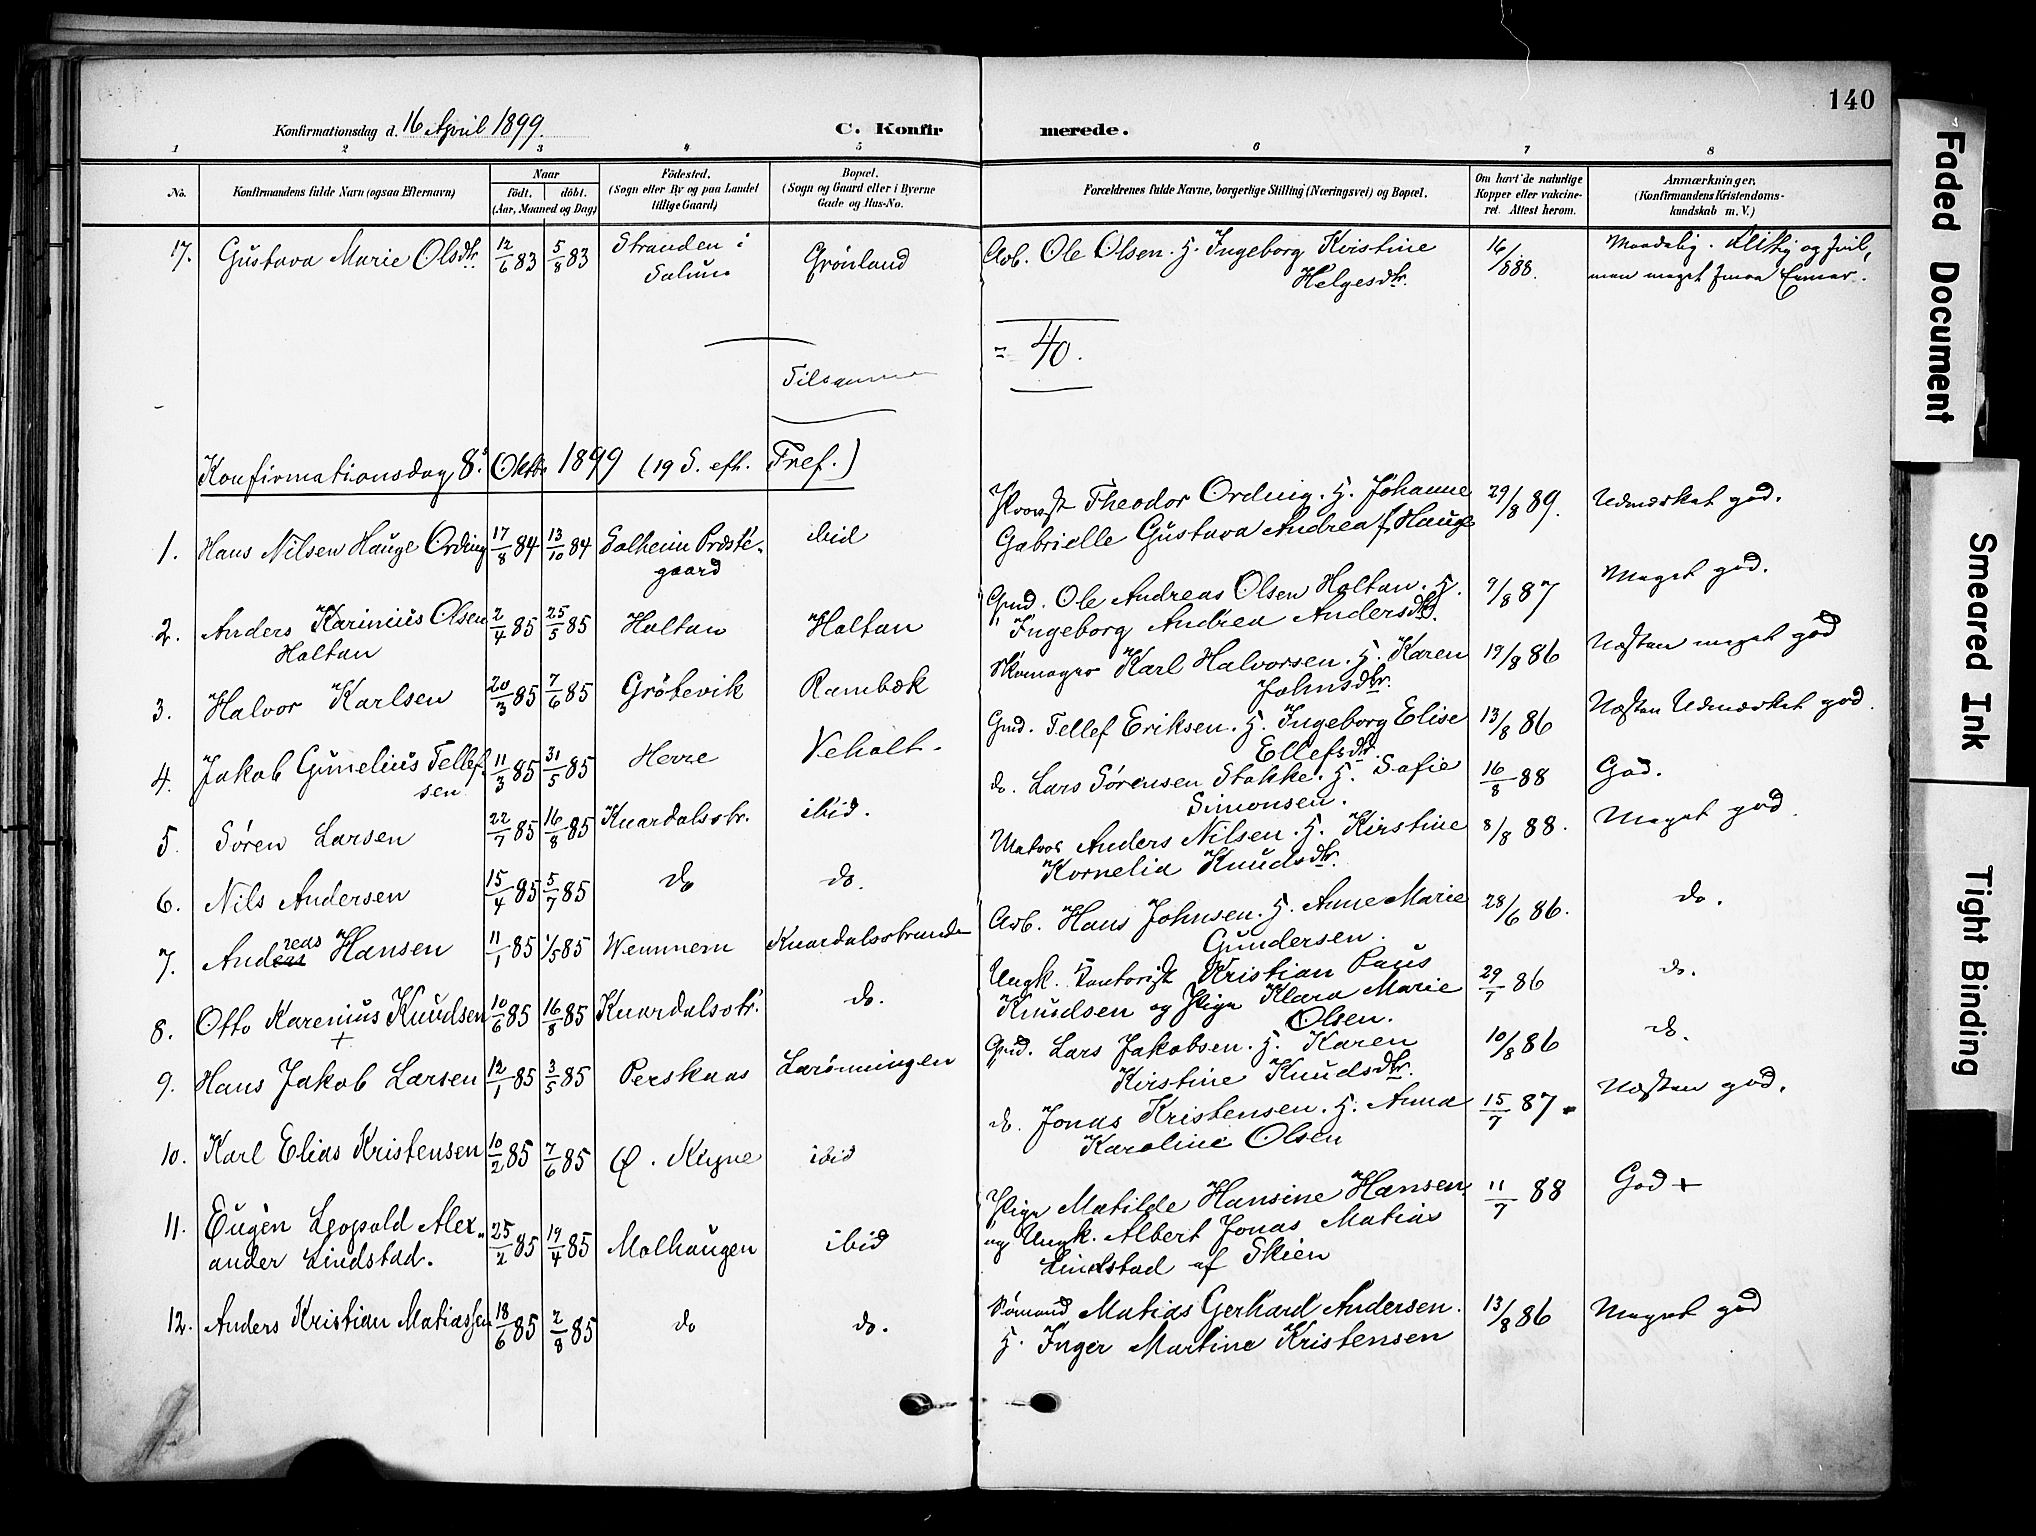 140
Konfirmationsdag d. 16 April 1899.
C. Konfirmerede.
1 2 3 4 5 6 7 8
No.
Konfirmandens fulde Navn (ogsaa Efternavn)
Naar
født. døbt.
(Aar, Maaned og Dag)
Fødested.
(Sogn eller By og paa Landet
tillige Gaard)
Bopæl.
(Sogn og Gaard eller i Byerne
Gade og Hus-No.
Forældrenes fulde Navne, borgerlige Stilling (Næringsvei) og Bopæl.
Om havt de naturlige
Kopper eller vakcine-
ret. Attest herom.
Anmærkninger,
(Konfirmandens Kristendoms-
kundskab m. V.)
17. Gustava Marie Olsdtr. 12/6 83 5/8 83 Stranden i Grønland Arb. Ole Olsen. H. Ingeborg Kristine 16/8 88. Maadelig. Flittig og snil,
Solum Helgesdtr. men meget smaa Evner.
Tilsammen = 40.
Konfirmationsdag 8. Oktbr 1899 (19 S. eft. Tref.)
Provst Theodor Ording. H. Johanne 29/8 89. Udmærket god.
1. Hans Nilsen Hauge Ording 17/8 84 13/10 84 Solheim Præste- ibid Gabrielle Gustava Andrea f. Hauge
gaard
2. Anders Karinius Olsen 2/4 85 25/5 85 Holtan Holtan Gmd. Ole Andreas Olsen Holtan. H. 9/8 87 Meget god.
Holtan Ingeborg Andrea Andersdtr.
3. Halvor Karlsen 20/3 85 7/6 85 Grötevik Rambæk Skomager Karl Halvorsen. H. Karen 19/8 86 Næsten meget god
Johnsdtr.
4. Jakob Gunelius Tellef- 11/3 85 31/5 85 Herre Veholt. Gmd. Tellef Eriksen. H. Ingeborg Elise 13/8 86 Næsten Udmærket god.
sen Ellefsdtr.
5. Søren Larsen 22/7 85 16/8 85 Knardalsstr. ibid. do. Lars Sørensen Stokke. H. Sofie 16/8 88 God.
Simonsen.
6. Nils Andersen 15/4 85 5/7 85 do do. Matros Anders Nilsen. H. Kirstine 8/8 88. Meget god.
Kornelia Knudsdtr.
7. Andreas Hansen 11/1 85 1/5 85 Wemmem Knardalsstranden Arb. Hans Johnsen. H. Anne Marie 28/6 86. do.
Gundersen.
8. Otto Karenius Knudsen 10/6 85 16/8 85 Knardalsstr. do. Ungk. Kontorist Kristian Paus 29/7 86 do.
+ Knudsen og Pige Klara Marie
Olsen.
9. Hans Jakob Larsen 12/1 85 3/5 85 Perskaas Larönningen Gmd. Lars Jakobsen. H. Karen 10/8 86 do.
Kirstine Knudsdtr.
10. Karl Elias Kristensen 10/2 85 7/6 85 Ø. Klyve ibid do. Jonas Kristensen. H. Anna 15/7 87. Næsten god.
Karoline Olsen
11. Eugèn Leopold Alex- 25/2 85 19/4 85 Molhaugen ibid Pige Matilde Hansine Hansen 11/7 88 God +
ander Lindstad. og Ungk. Albert Jonas Matias
Lindstad af Skien
12. Anders Kristian Matiassen 18/6 85 2/8 85 do do. Sømand Matias Gerhard Andersen. 13/8 86 Meget god
H. Inger Martine Kristensen
Faded Document
Smeared Ink
Tight Binding